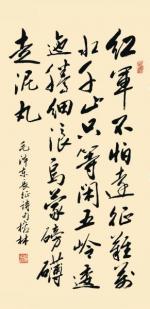 红军不怕远征难万
水千山只等闲五岭逶
迤腾细浪乌蒙磅礴
走泥丸
毛泽东长征诗句 榕林